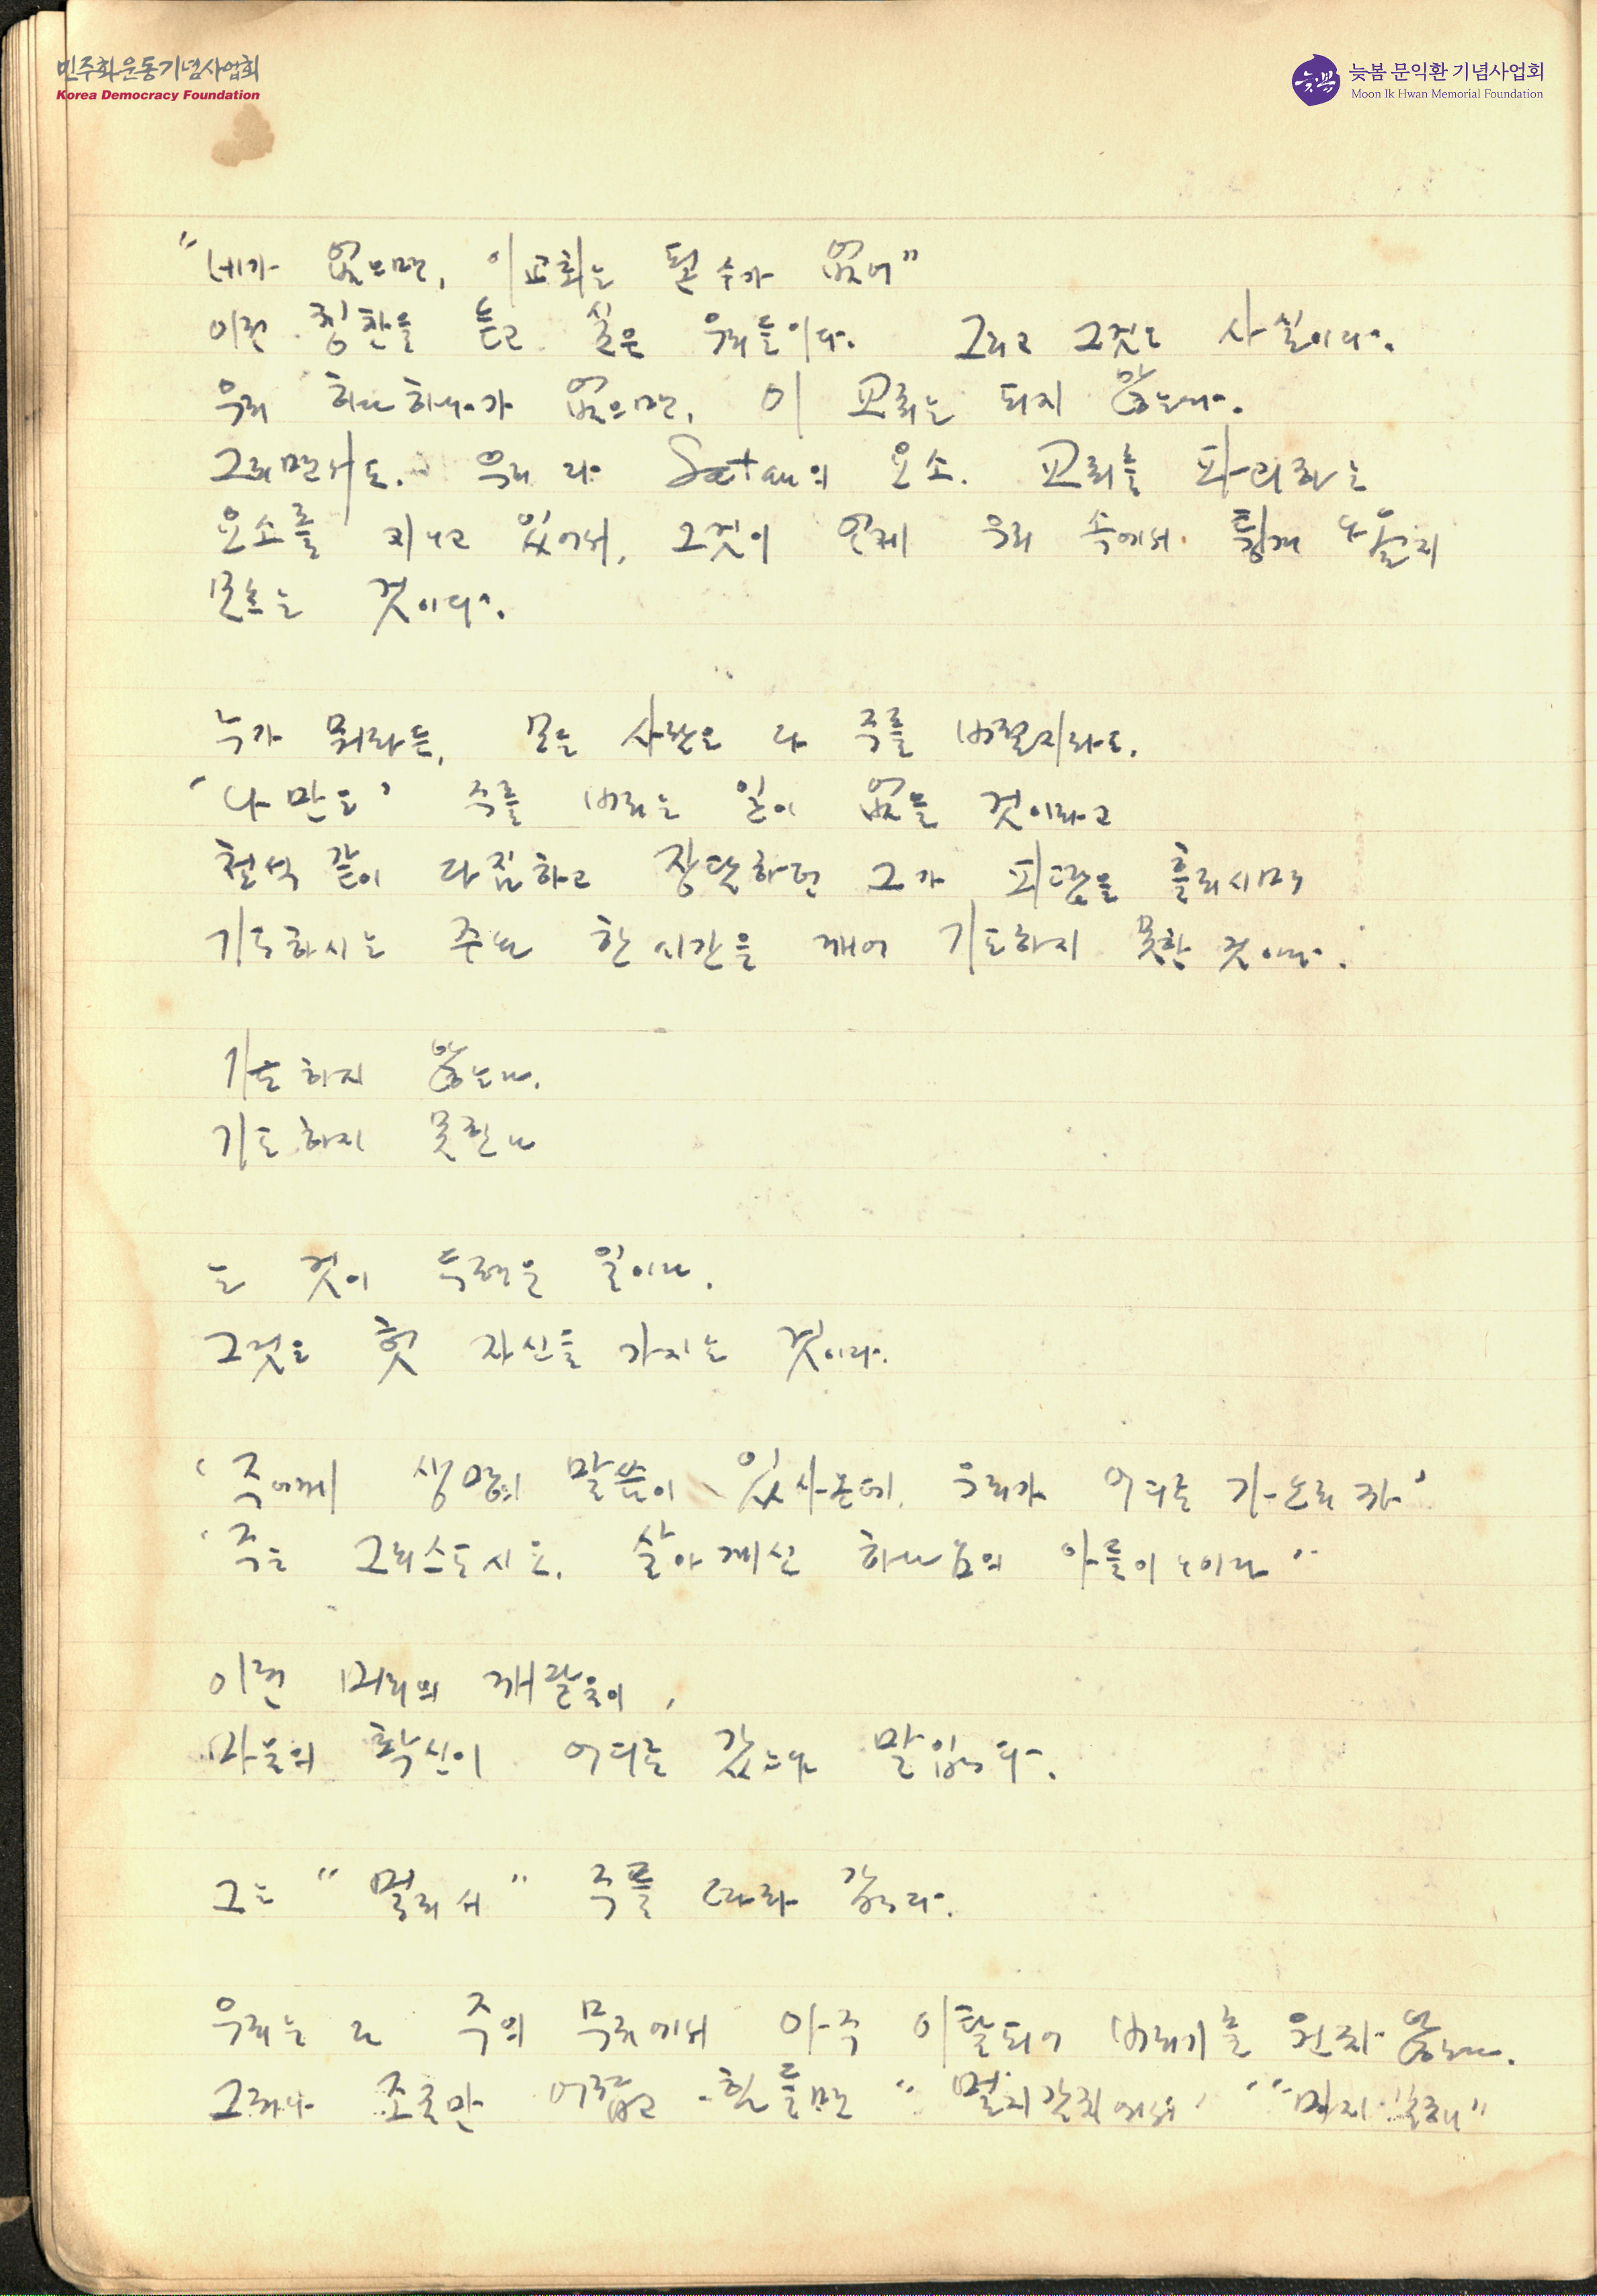 민주화운동기념사업회
Korea Democracy Foundation
늦봄 문익환 기념사업회
Moon Ik Hwan Memorial Foundation
"네가 없으면, 이 교회는 될 수가 없어"
이런 칭찬을 듣고 싶은 우리들이다. 그리고 그것도 사실이다.
우리 하나하나가 없으면, 이 교회는 되지 않는다.
그러면서도, 우리 다 Satan의 요소, 교회를 파괴하는
요소를 지니고 있어서, 그것이 언제 우리 속에서 튕겨 나올지
모르는 것이다.
누가 뭐라든, 모든 사람은 다 주를 버릴지라도,
'나만은' 주를 버리는 일이 없을 것이라고
철석 같이 다짐하고 장담하던 그가 피땀을 흘리시며
기도하시는 주와 한 시간을 깨어 기도하지 못한 것이다.
기도하지 않는다.
기도하지 못한다
는 것이 두려운 일이다.
그것은 헛 자신을 가지는 것이다.
'주에게 생명의 말씀이 있사온데, 우리가 어디로 가오리까'
'주는 그리스도시요, 살아계신 하나님의 아들이니이다"
이런 머리의 깨달음이,
마음의 확신이 어디로 갔느냐 말입니다.
그는 "멀리서" 주를 따라 갑니다.
우리는 다 주의 무리에서 아주 이탈되어 버리기를 원치 않는다.
그러나 조금만 어렵고 힘들면 "멀지감치에서"